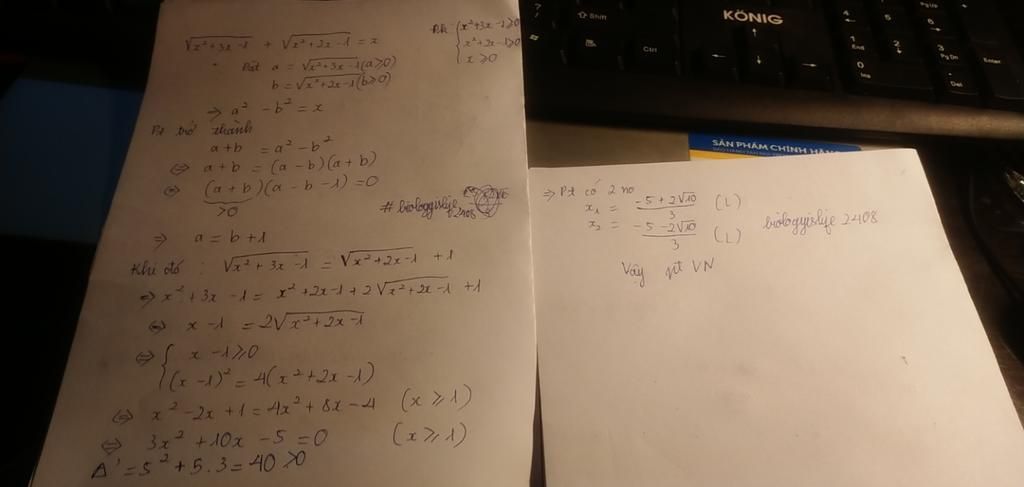 √(x²+3x-1) + √(x²+2x-1) = x
Đk {x²+3x-1≥0
x²+2x-1≥0
x ≥0
Đặt a = √(x²+3x-1) (a≥0)
b = √(x²+2x-1) (b≥0)
⇒ a² - b² = x
Pt trở thành
a+b = a² - b²
⇔ a+b = (a-b)(a+b)
⇔ (a+b)(a-b-1) = 0
>0
# biologyislife
2408
⇒ a = b+1
Khi đó : √(x²+3x-1) = √(x²+2x-1) + 1
⇒ x²+3x-1 = x²+2x-1+2√(x²+2x-1) +1
⇔ x-1 = 2√(x²+2x-1)
⇔ {x-1≥0
(x-1)² = 4(x²+2x-1)
⇔ x²-2x+1 = 4x²+8x-4 (x≥1)
⇔ 3x²+10x-5=0 (x≥1)
Δ' = 5²+5.3 = 40 >0
⇒ Pt có 2 no
x₁ = (-5+2√10)/3 (L)
x₂ = (-5-2√10)/3 (L)
biologyislife 2408
Vậy pt VN
KÖNIG
Shift
Ctrl
4
5
6
1
End
2
3
Pg Dn
0
Ins
.
Del
Enter
SẢN PHẨM CHÍNH HÃNG